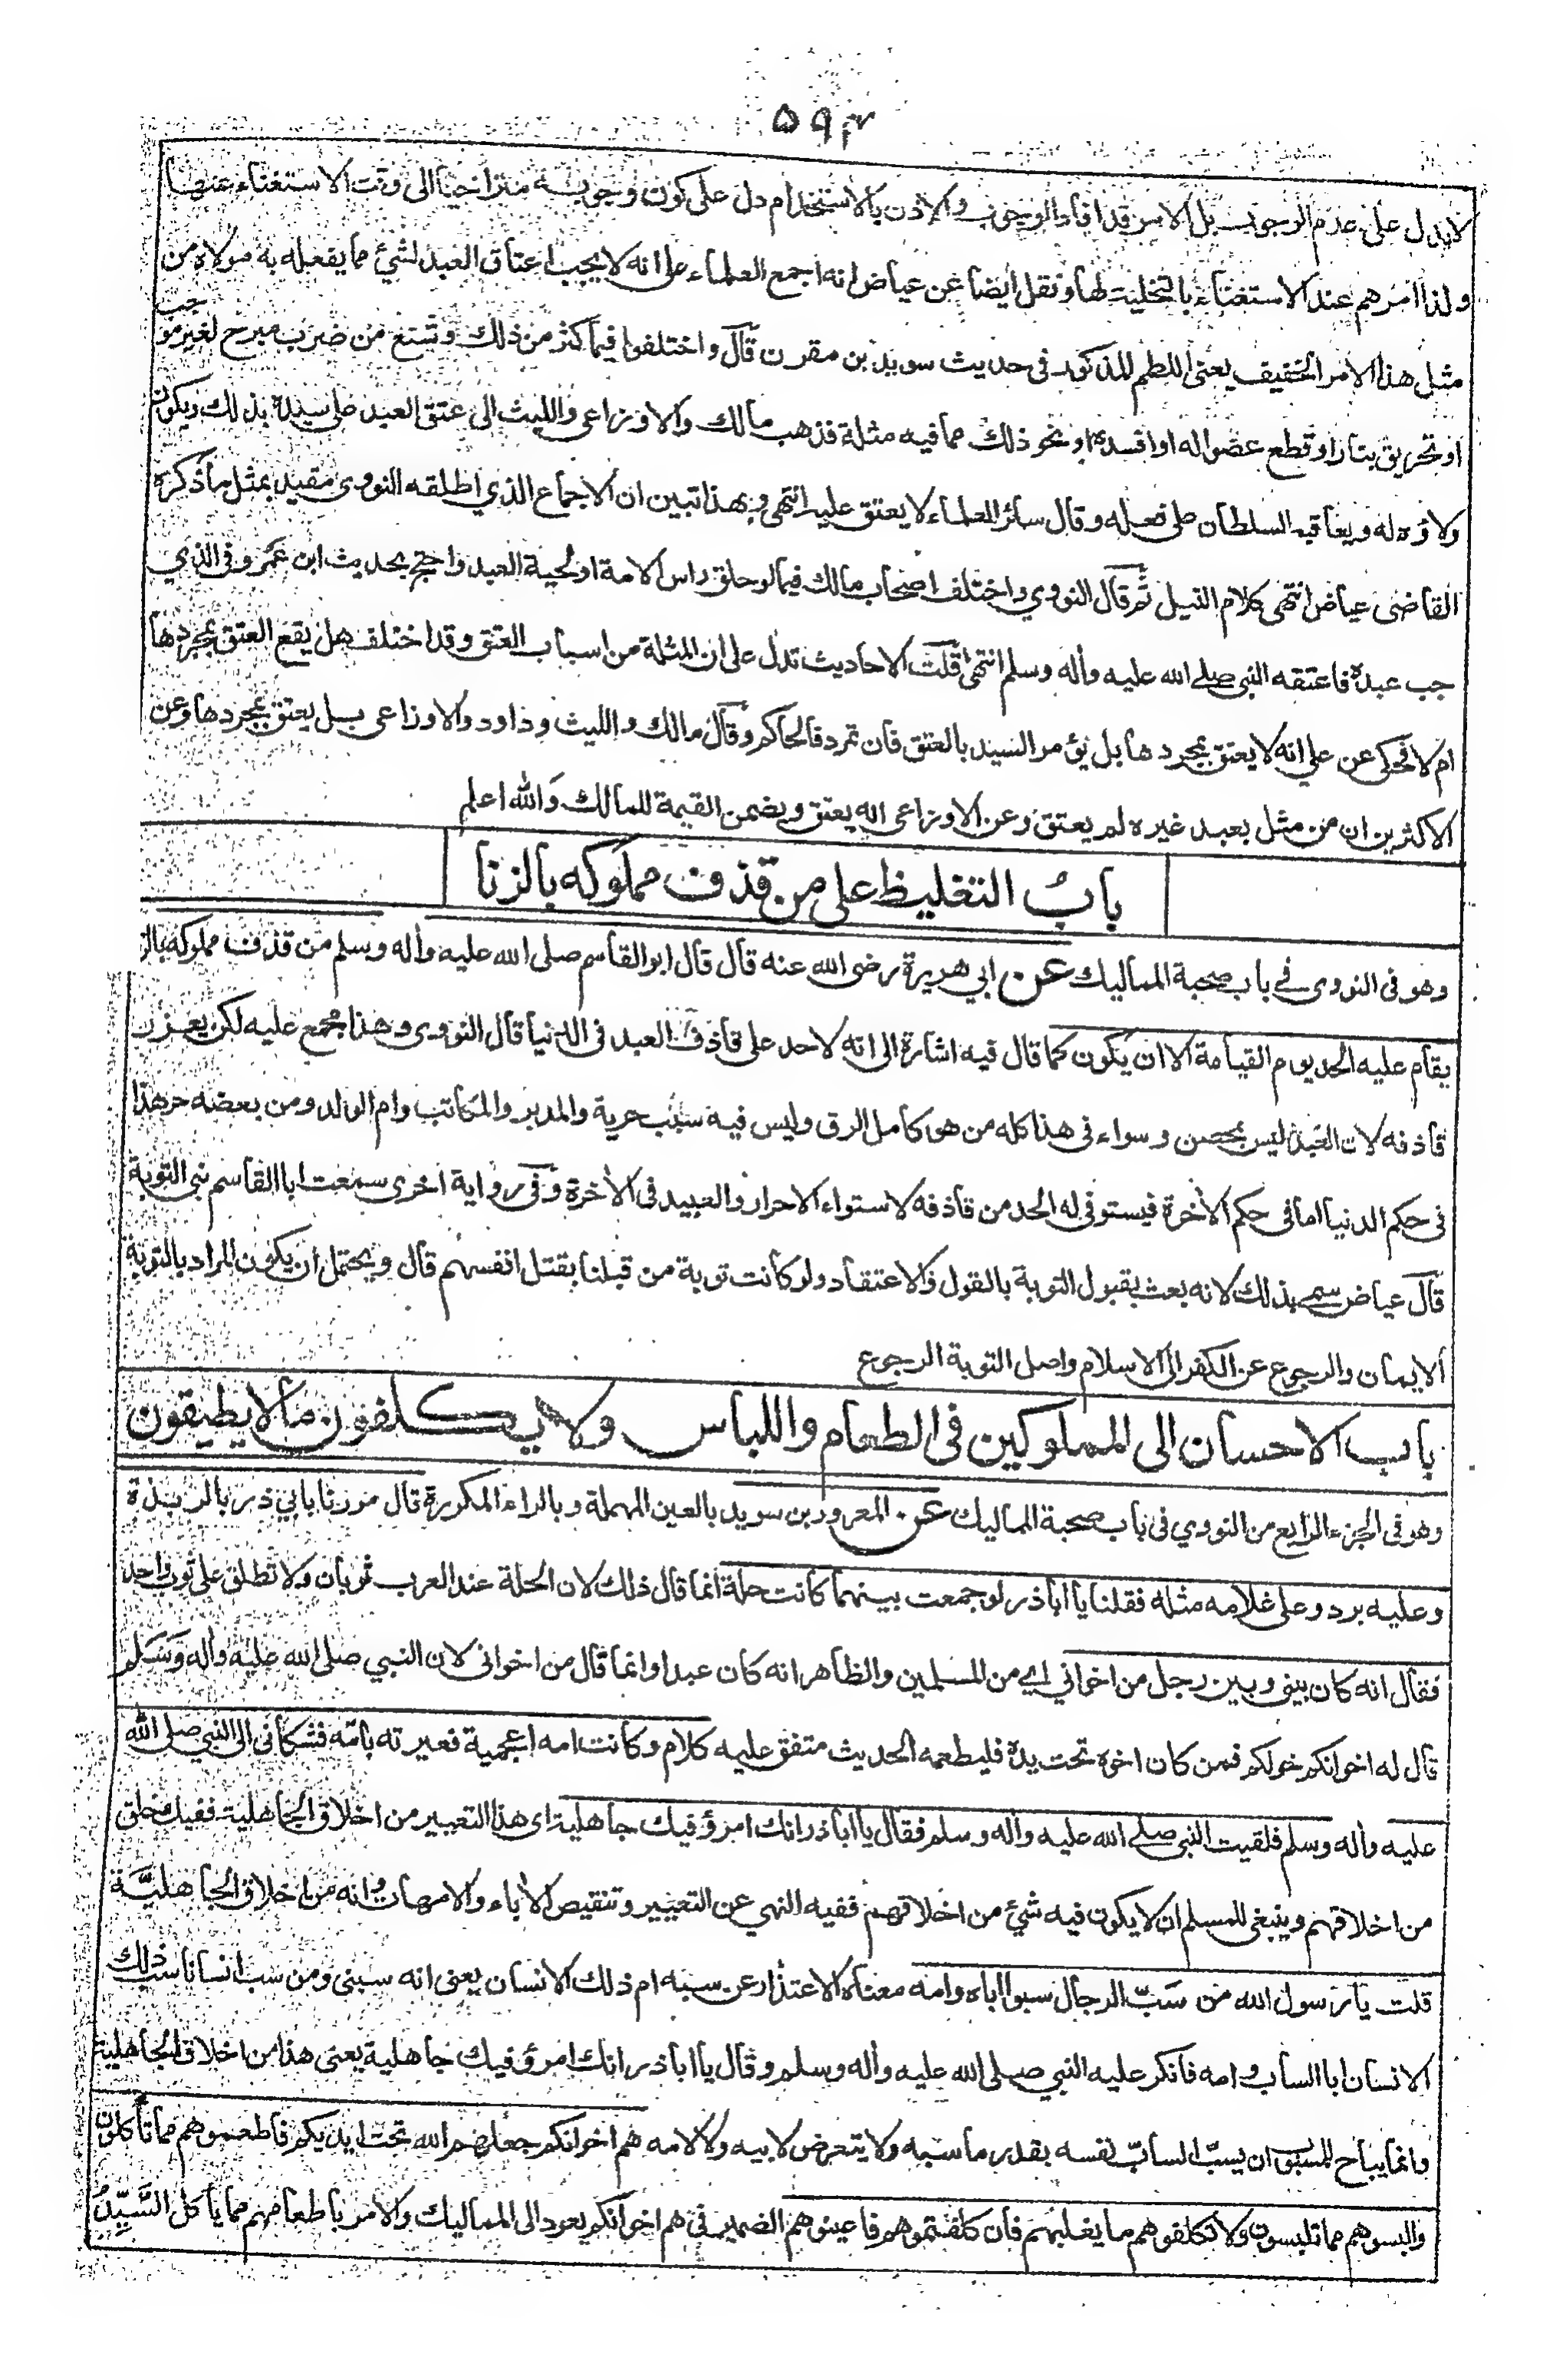 ۵۹۴
لا يدل على عدم الوجوب بل الامر قد افاد الوجوب والاذن بالاستخدام دل على كون وجوبه متراخيا الى وقت الاستغناء عنها
ولذا امرهم عند الاستغناء بالتخلية لها ونقل ايضا عن عياض انه اجمع العلماء على انه لا يجب اعتاق العبد لشئ مما يفعله به مولاه من
مثل هذا الامر الخفيف يعنى اللطم المذكور فى حديث سويد بن مقرن قال واختلفوا فيما كثر من ذلك وشنع من ضرب مبرح لغير موجب
او تحريق بنار او قطع عضو له او افسده او نحو ذلك مما فيه مثلة فذهب مالك والاوزاعى والليث الى عتق العبد على سيده بذلك ويكون
ولاؤه له ويعاقبه السلطان على فعله وقال سائر العلماء لا يعتق عليه انتهى وبهذا تبين ان الاجماع الذي اطلقه النووى مقيد بمثل ما ذكره
القاضى عياض انتهى كلام النيل ثم قال النووي واختلف اصحاب مالك فيما لو حلق راس الامة او لحية العبد واحتج بحديث ابن عمرو فى الذي
جب عبده فاعتقه النبى صلى الله عليه واله وسلم انتهى قلت الاحاديث تدل على ان المثلة من اسباب العتق وقد اختلف هل يقع العتق بمجردها
ام لا فحكى عن علي انه لا يعتق بمجردها بل يؤمر السيد بالعتق فان تمرد فالحاكم وقال مالك والليث وداود والاوزاعى بل يعتق بمجردها وعن
الاكثرين ان من مثل بعبد غيره لم يعتق وعن الاوزاعى انه يعتق ويضمن القيمة للمالك والله اعلم
باب التغليظ على من قذف مملوكه بالزنا
وهو فى النووى فے باب صحبة المماليك عن ابي هريرة رضى الله عنه قال قال ابو القاسم صلى الله عليه واله وسلم من قذف مملوكه بالز
يقام عليه الحد يوم القيامة الا ان يكون كما قال فيه اشارة الى انه لا حد على قاذف العبد فى الدنيا قال النووى وهذا مجمع عليه لكن يعزر
قاذفه لان العبد ليس بمحصن وسواء فى هذا كله من هو كامل الرق وليس فيه سبب حرية والمدبر والمكاتب وام الولد ومن بعضه حر هذا
فى حكم الدنيا اما فى حكم الأخرة فيستوفى له الحد من قاذفه لاستواء الاحرار والعبيد فى الأخرة وفى رواية اخرى سمعت ابا القاسم نبى التوبة
قال عياض سمے بذلك لانه بعث بقبول التوبة بالقول والاعتقاد ولو كانت توبة من قبلنا بقتل انفسهم قال ويحتمل ان يكون المراد بالتوبة
الايمان والرجوع عن الكفر الى الاسلام واصل التوبة الرجوع
باب الاحسان الى المملوكين فى الطعام واللباس ولا يكلفون ما لا يطيقون
وهو فى الجزء الرابع من النووي فى باب صحبة المماليك عن المعرور بن سويد بالعين المهملة وبالراء المكررة قال مررنا بابي ذر بالربذة
وعليه برد وعلى غلامه مثله فقلنا يا اباذر لو جمعت بينهما كانت حلة انما قال ذلك لان الحلة عند العرب ثوبان ولا تطلق على ثوب واحد
فقال انه كان بينى وبين رجل من اخواني اے من المسلمين والظاهر انه كان عبدا وانما قال من اخوانى لان النبي صلى الله عليه واله وسلم
قال له اخوانكم خولكم فمن كان اخوه تحت يده فليطعمه الحديث متفق عليه كلام وكانت امه اعجمية فعيرته بامه فشكانى الى النبي صلى الله
عليه واله وسلم فلقيت النبى صلے الله عليه واله وسلم فقال يا اباذر انك امرؤ فيك جاهلية اى هذا التعيير من اخلاق الجاهلية ففيك خلق
من اخلاقهم وينبغى للمسلم ان لا يكون فيه شئ من اخلاقهم ففيه النهي عن التعيير وتنقيص الأباء والامهات وانه من اخلاق الجاهلية
قلت يا رسول الله من سب الرجال سبوا اباه وامه معناه الاعتذار عن سبه ام ذلك الانسان يعنى انه سبنى ومن سب انسانا سب ذلك
الانسان ابا الساب وامه فانكر عليه النبي صلى الله عليه واله وسلم وقال يا اباذر انك امرؤ فيك جاهلية يعنى هذا من اخلاق الجاهلية
وانما يباح للمسبوب ان يسب الساب نفسه بقدر ما سبه ولا يتعرض لابيه ولا لامه هم اخوانكم جعلهم الله تحت ايديكم فاطعموهم مما تأكلون
والبسوهم مما تلبسون ولا تكلفوهم ما يغلبهم فان كلفتموهم فاعينوهم الضمير فى هم اخوانكم يعود الى المماليك والامر باطعامهم مما يأكل السيد